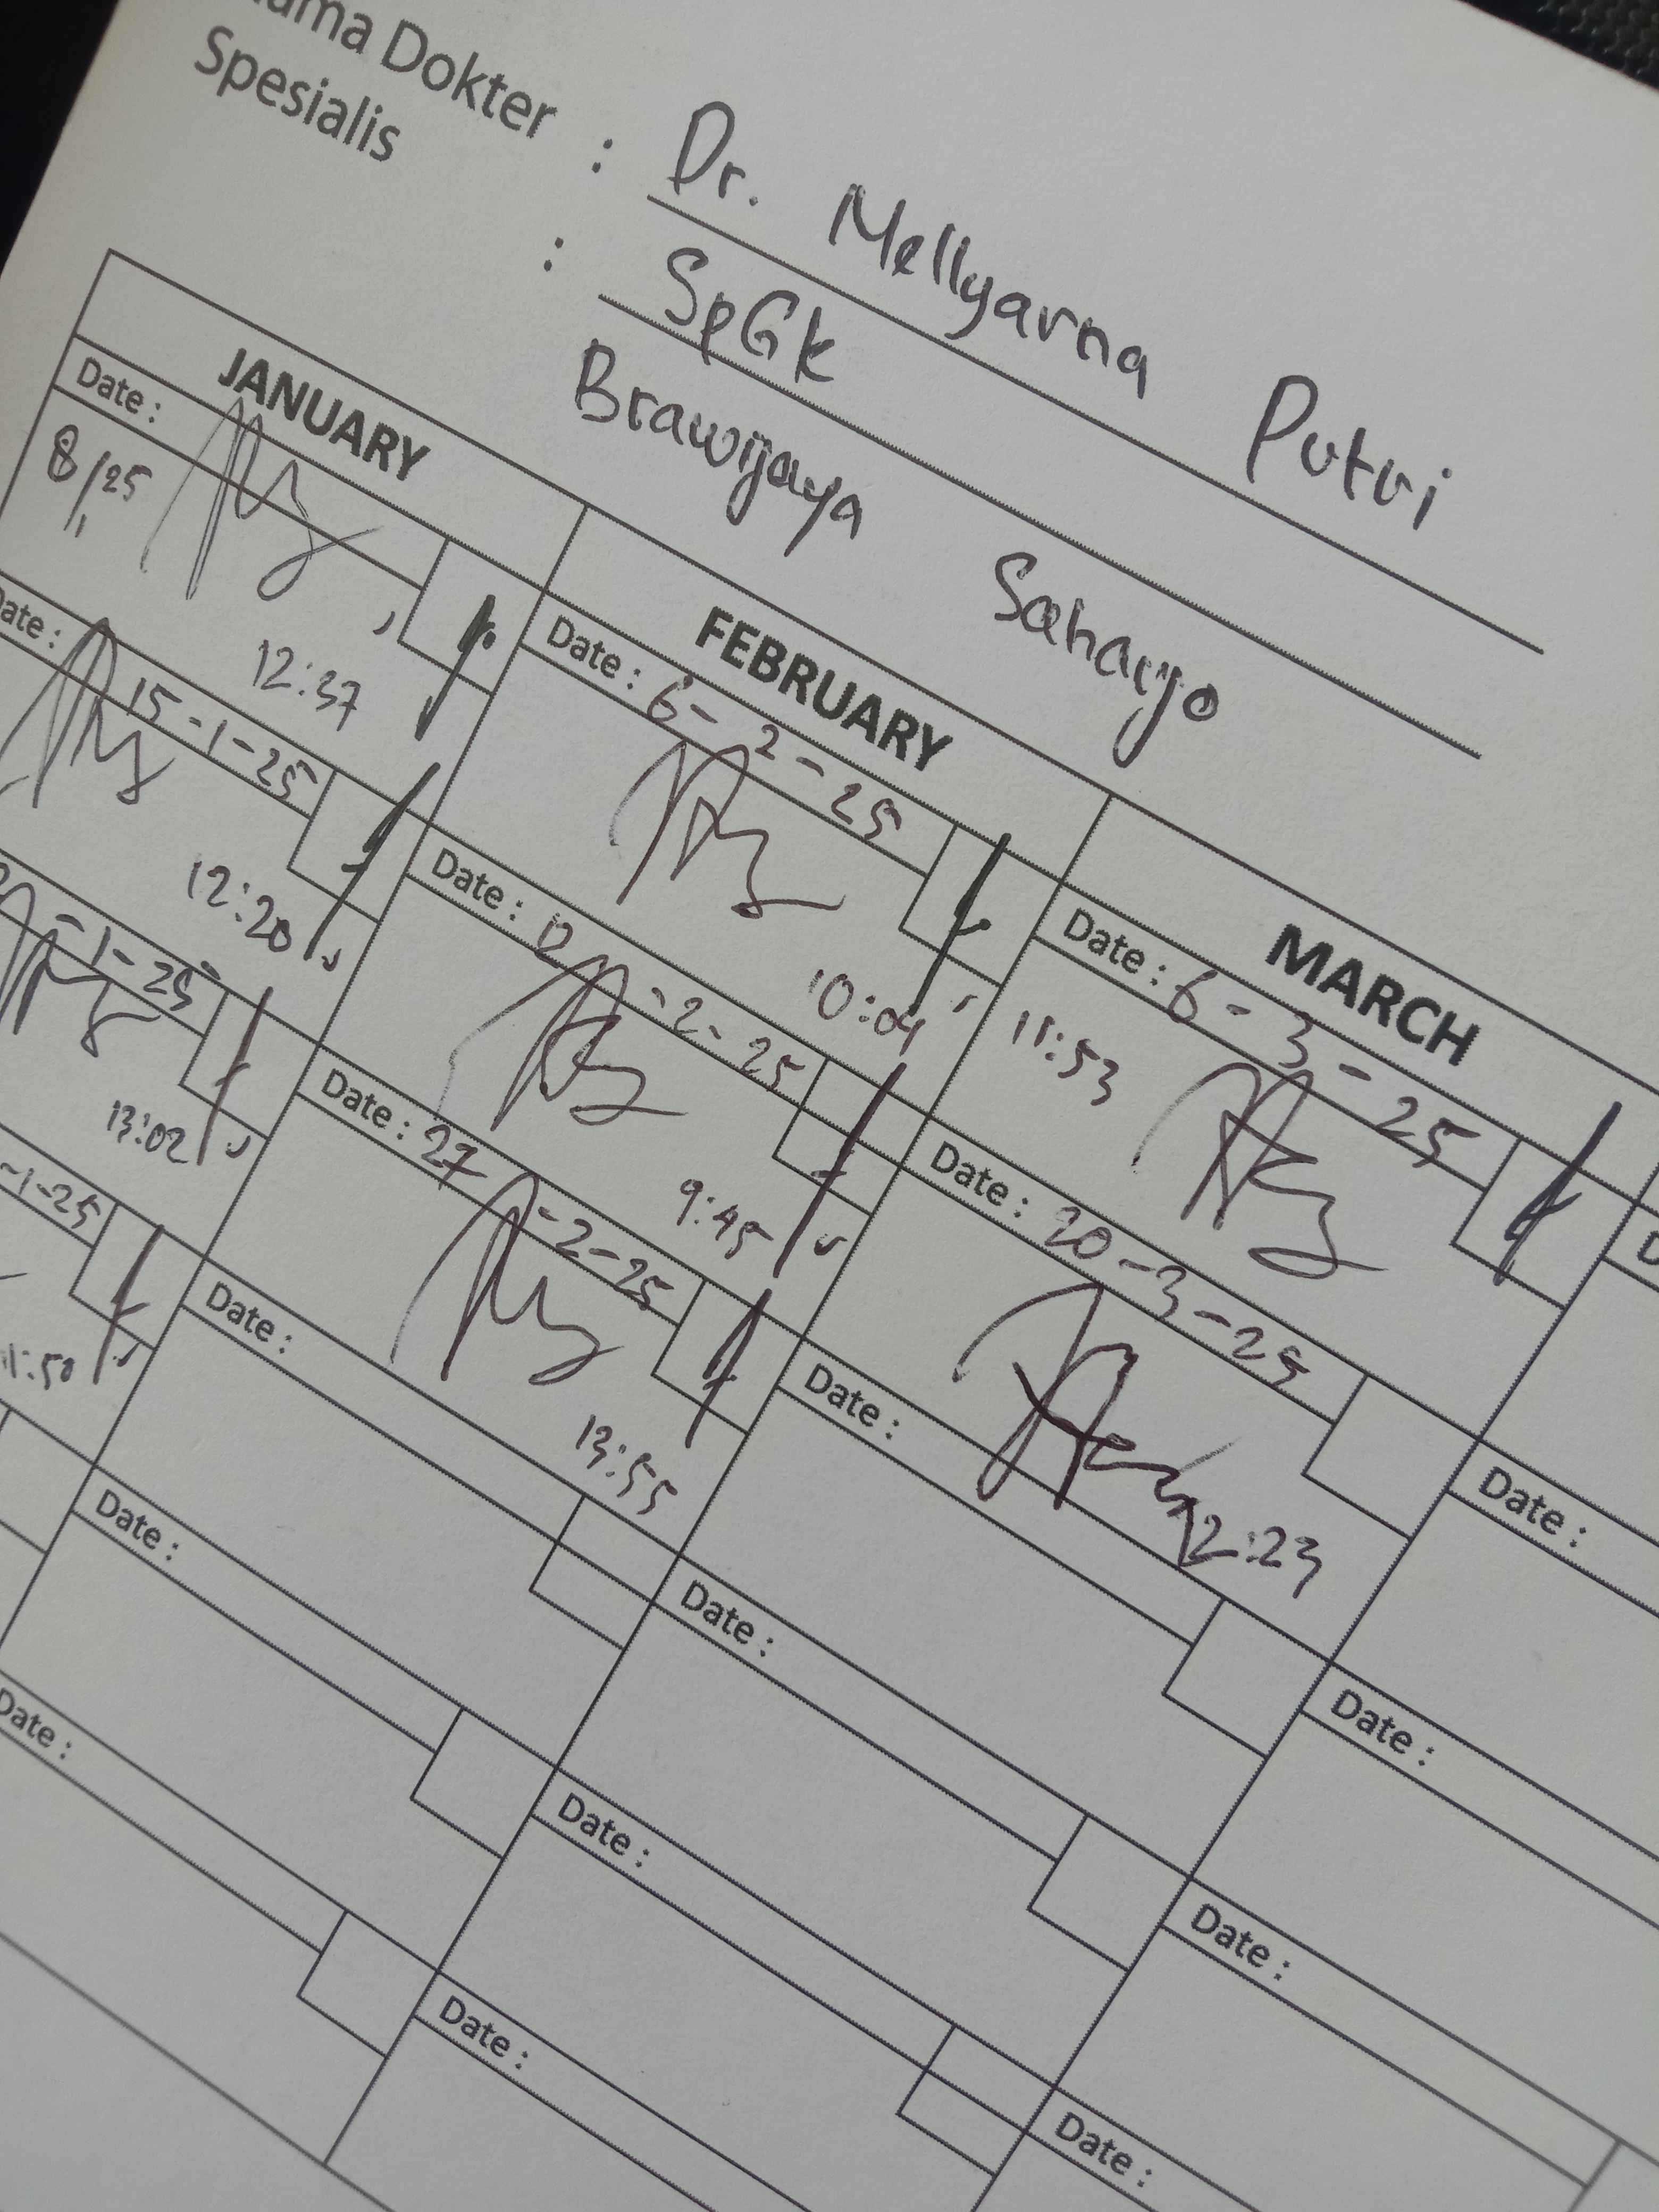 Dokter : Dr. Mellyarna Putri
Spesialis : SpGK
Brawijaya Saharjo
JANUARY
Date :
8/25
12:37
Date : 15-1-25
12:20
-1-25
13:02
-1-25
11:50
Date :
FEBRUARY
Date : 6-2-25
10:04
Date : 12-2-25
9:45
Date : 27-2-25
13:55
Date :
Date :
Date :
Date :
MARCH
Date : 6-3-25
11:53
Date : 20-3-25
12:23
Date :
Date :
Date :
Date :
Date :
Date :
Date :